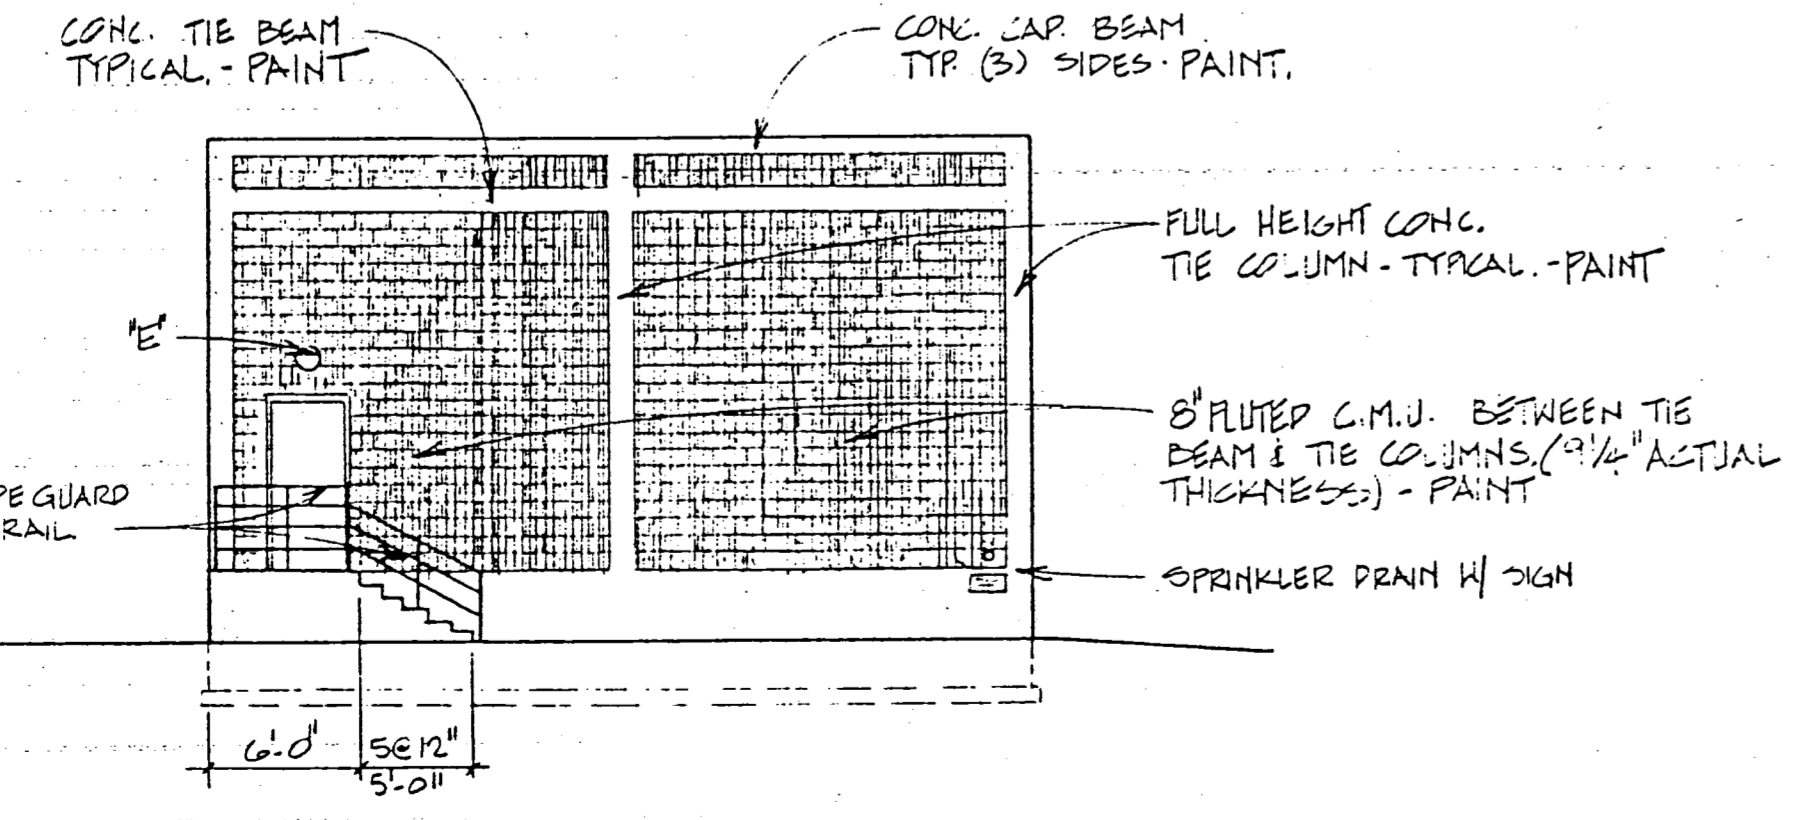 CONC. TIE BEAM
TYPICAL. - PAINT
CONC. CAP. BEAM
TYP. (3) SIDES - PAINT.
FULL HEIGHT CONC.
TIE COLUMN - TYPICAL. - PAINT
"E"
8" FLUTED C.M.U. BETWEEN TIE
BEAM & TIE COLUMNS. (9 1/4" ACTUAL
THICKNESS) - PAINT
PE GUARD
RAIL
SPRINKLER DRAIN W/ SIGN
6'-0"
5@12"
5'-0"